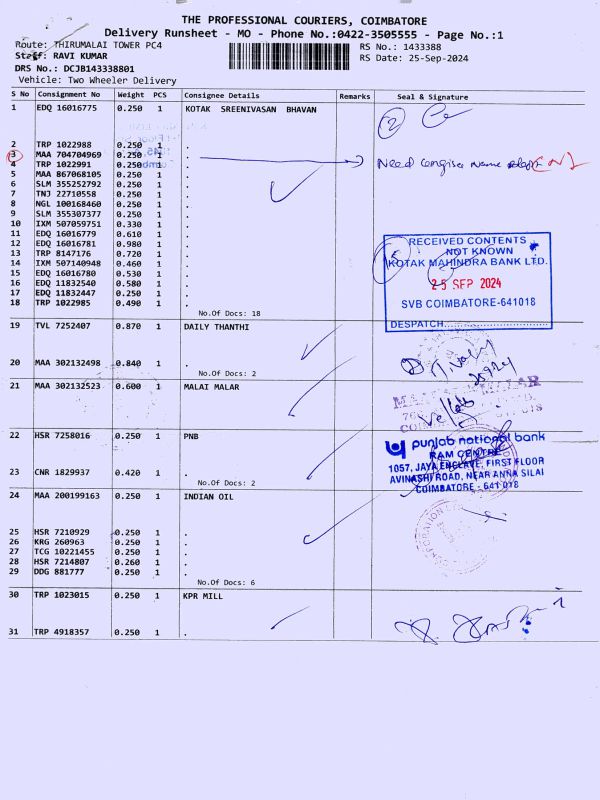 THE PROFESSIONAL COURIERS, COIMBATORE
Delivery Runsheet - MO - Phone No.:0422-3505555 - Page No.:1
Route: THIRUMALAI TOWER PC4 RS No.: 1433388
Staff: RAVI KUMAR RS Date: 25-Sep-2024
DRS No.: DCJB143338801
Vehicle: Two Wheeler Delivery
S No Consignment No Weight PCS Consignee Details Remarks Seal & Signature
1 EDQ 16016775 0.250 1 KOTAK SREENIVASAN BHAVAN
2 TRP 1022988 0.250 1 .
3 MAA 704704969 0.250 1 . Need consignee name
4 TRP 1022991 0.250 1 .
5 MAA 867068105 0.250 1 .
6 SLM 355252792 0.250 1 .
7 TNJ 22710558 0.250 1 .
8 NGL 100168460 0.250 1 .
9 SLM 355307377 0.250 1 .
10 IXM 507059751 0.330 1 .
11 EDQ 16016779 0.610 1 .
12 EDQ 16016781 0.980 1 .
13 TRP 8147176 0.720 1 .
14 IXM 507140948 0.460 1 .
15 EDQ 16016780 0.530 1 .
16 EDQ 11832540 0.580 1 .
17 EDQ 11832447 0.250 1 .
18 TRP 1022985 0.490 1 .
No.Of Docs: 18
RECEIVED CONTENTS
NOT KNOWN
KOTAK MAHINDRA BANK LTD.
25 SEP 2024
SVB COIMBATORE-641018
DESPATCH
19 TVL 7252407 0.870 1 DAILY THANTHI
20 MAA 302132498 0.840 1 .
No.Of Docs: 2
21 MAA 302132523 0.600 1 MALAI MALAR
22 HSR 7258016 0.250 1 PNB
23 CNR 1829937 0.420 1 .
No.Of Docs: 2
punjab national bank
RAM CENTRE
1057, JAYA ENCLAVE, FIRST FLOOR
AVINASHI ROAD, NEAR ANNA SILAI
COIMBATORE - 641 018
24 MAA 200199163 0.250 1 INDIAN OIL
25 HSR 7210929 0.250 1 .
26 KRG 260963 0.250 1 .
27 TCG 10221455 0.250 1 .
28 HSR 7214807 0.260 1 .
29 DDG 881777 0.250 1 .
No.Of Docs: 6
30 TRP 1023015 0.250 1 KPR MILL
31 TRP 4918357 0.250 1 .